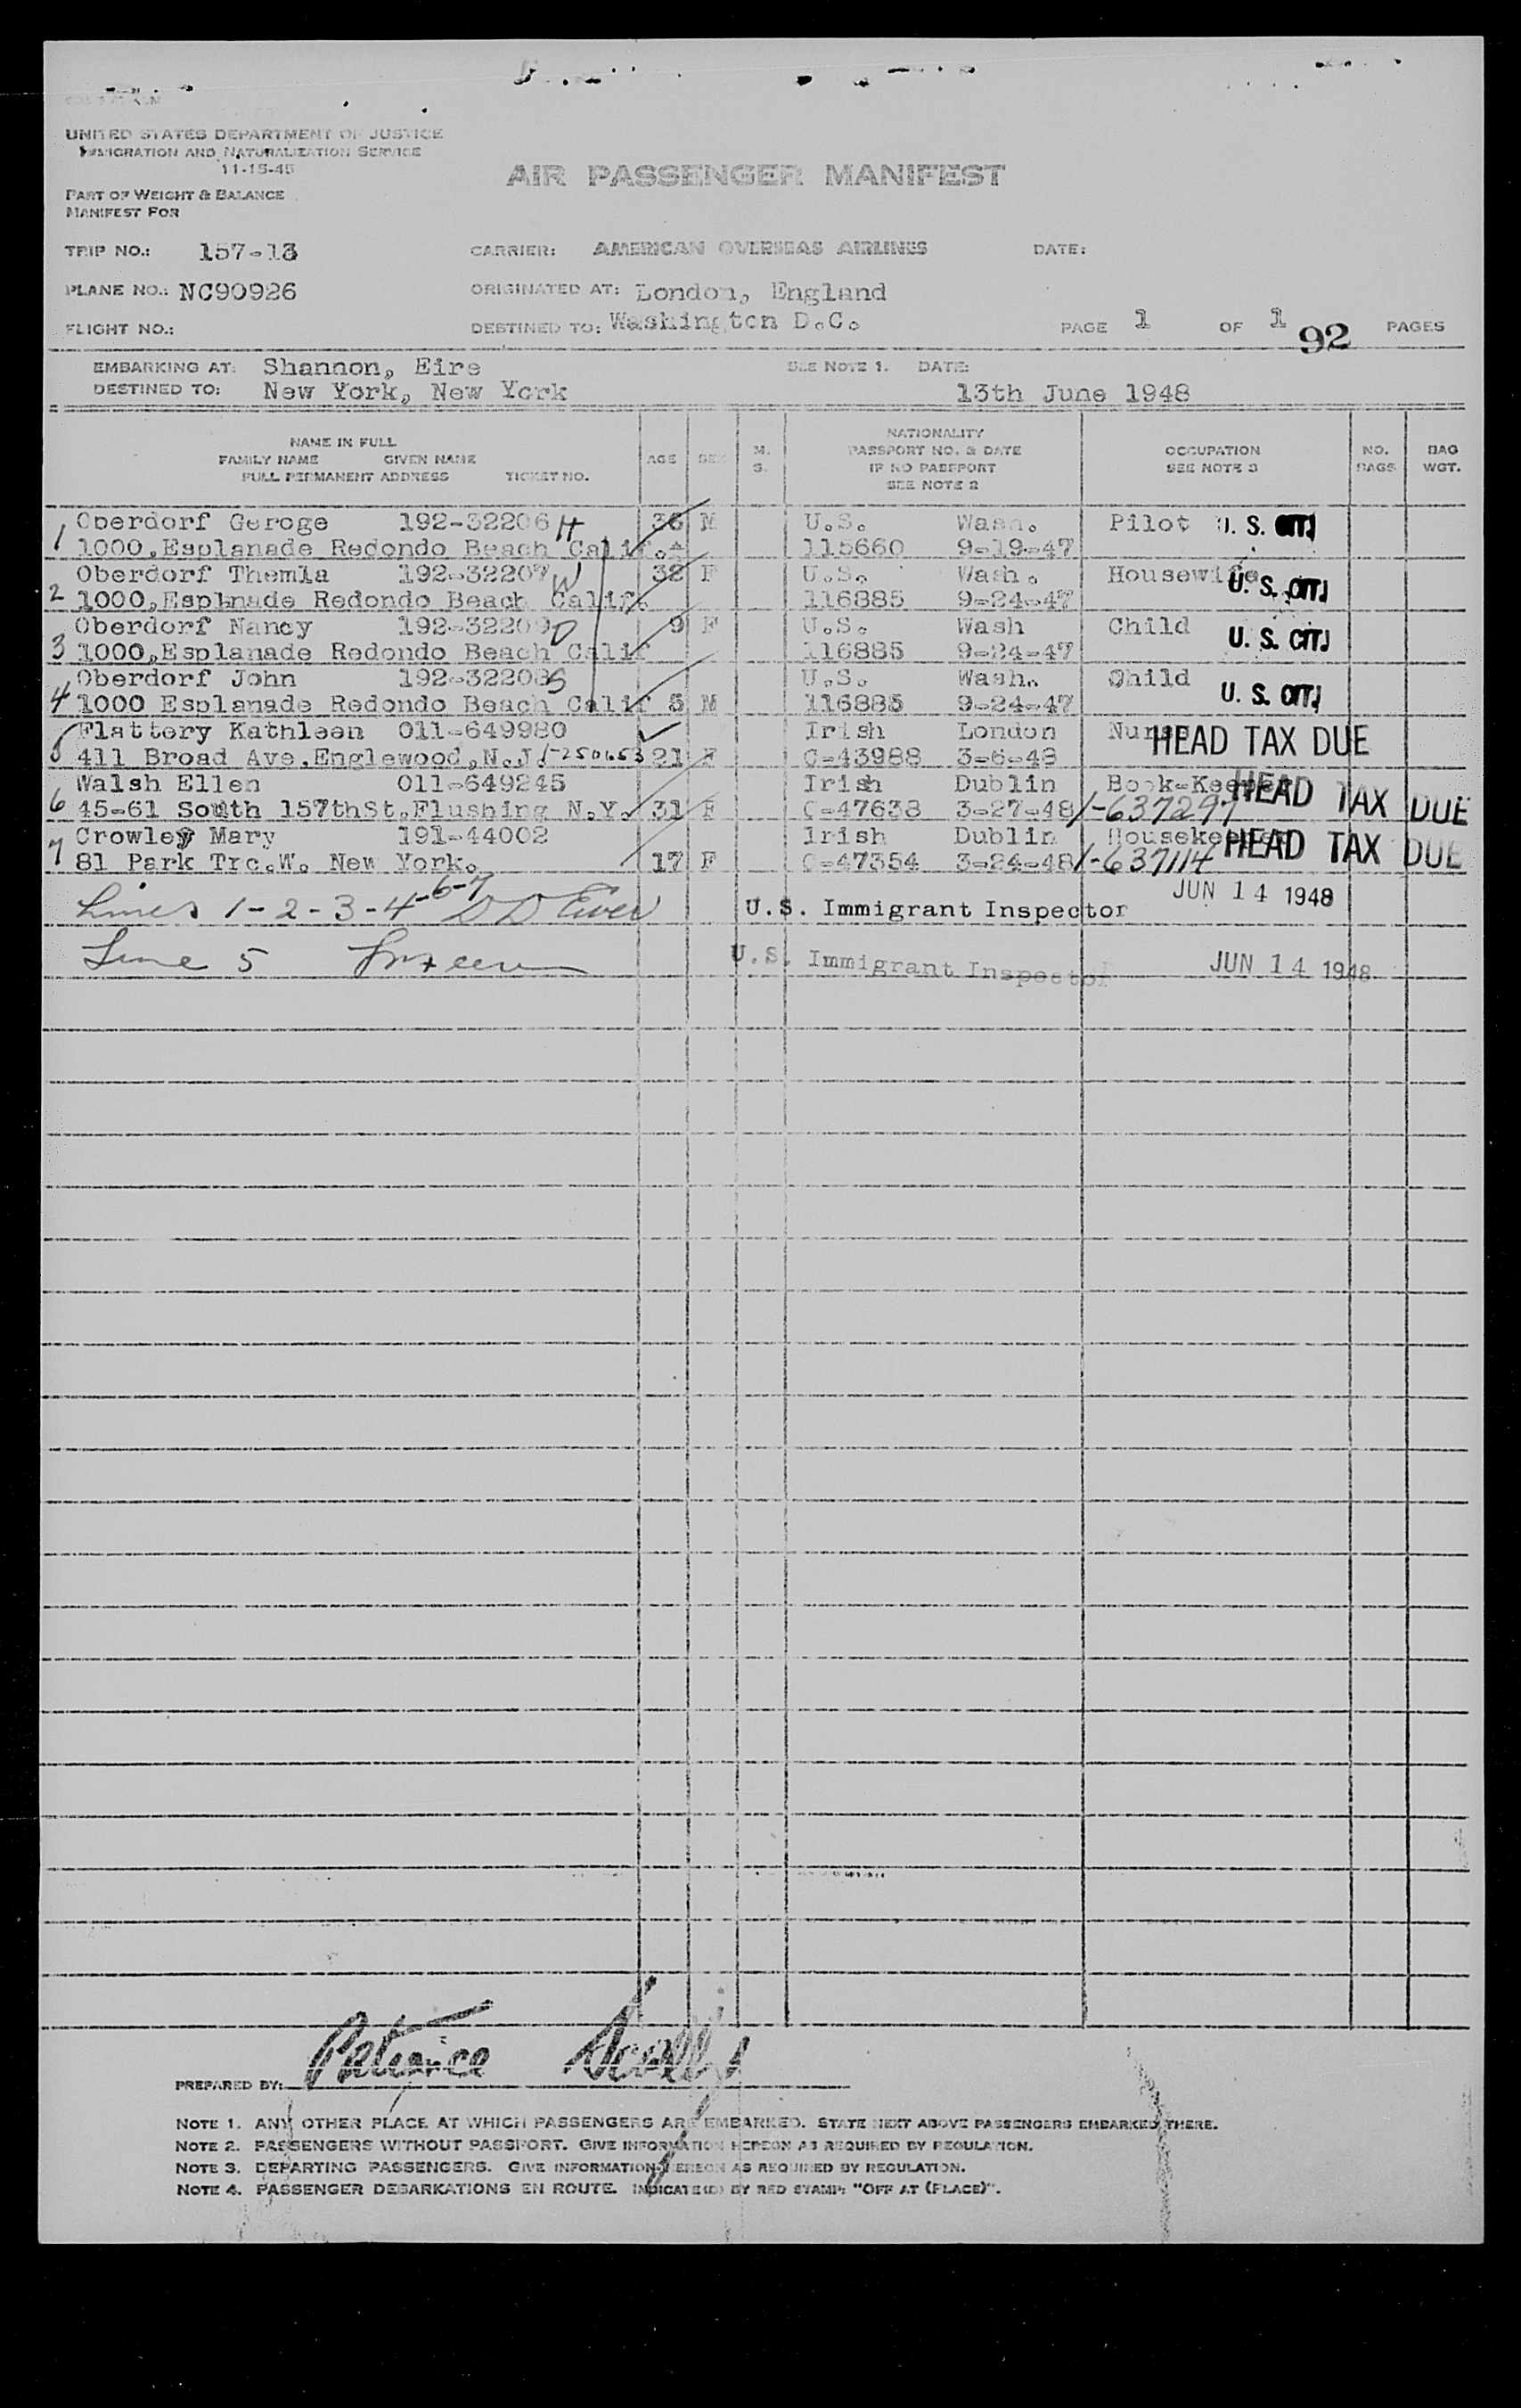 UNITED STATES DEPARTMENT OF JUSTICE
IMMIGRATION AND NATURALIZATION SERVICE
11-15-45
AIR PASSENGER MANIFEST
PART OF WEIGHT & BALANCE
MANIFEST FOR
TRIP NO.: 157-13 CARRIER: AMERICAN OVERSEAS AIRLINES DATE:
PLANE NO.: NC90926 ORIGINATED AT: London, England
FLIGHT NO.: DESTINED TO: Washington D.C. PAGE 1 OF 1 92 PAGES
EMBARKING AT: Shannon, Eire SEE NOTE 1. DATE:
DESTINED TO: New York, New York 13th June 1948
NAME IN FULL
FAMILY NAME GIVEN NAME
FULL PERMANENT ADDRESS TICKET NO.
AGE SEX M. S.
NATIONALITY
PASSPORT NO. & DATE
IF NO PASSPORT
SEE NOTE 2
OCCUPATION
SEE NOTE 3
NO. BAGS
BAG WGT.
Oberdorf Geroge 192-32206 H 36 M U.S. Wash. Pilot U. S. CIT.
1 1000,Esplanade Redondo Beach Calif. 115660 9-19-47
Oberdorf Themla 192-32207 W 32 F U.S. Wash. Housewife U. S. CIT.
2 1000,Esplnade Redondo Beach Calif. 116885 9-24-47
Oberdorf Nancy 192-32209 D 9 F U.S. Wash Child U. S. CIT.
3 1000,Esplanade Redondo Beach Calif 116885 9-24-47
Oberdorf John 192-32208 S U.S. Wash. Child U. S. CIT.
4 1000 Esplanade Redondo Beach Calif 5 M 116885 9-24-47
Flattery Kathleen 011-649980 Irish London Nurse HEAD TAX DUE
5 411 Broad Ave.Englewood,N.J. 1-250653 21 F C-43988 3-6-48
Walsh Ellen 011-649245 Irish Dublin Book-Keeper HEAD TAX DUE
6 45-61 South 157thSt.Flushing N.Y. 31 F C-47638 3-27-48 1-637297
Crowley Mary 191-44002 Irish Dublin Housekeeper HEAD TAX DUE
7 81 Park Trc.W. New York. 17 F C-47354 3-24-48 1-637114
Lines 1-2-3-4-6-7 U.S. Immigrant Inspector JUN 14 1948
Line 5 U.S. Immigrant Inspector JUN 14 1948
PREPARED BY: Patience Scally
NOTE 1. ANY OTHER PLACE AT WHICH PASSENGERS ARE EMBARKED. STATE NEXT ABOVE PASSENGERS EMBARKED THERE.
NOTE 2. PASSENGERS WITHOUT PASSPORT. GIVE INFORMATION HEREON AS REQUIRED BY REGULATION.
NOTE 3. DEPARTING PASSENGERS. GIVE INFORMATION HEREON AS REQUIRED BY REGULATION.
NOTE 4. PASSENGER DEBARKATIONS EN ROUTE. INDICATE(D) BY RED STAMP: "OFF AT (PLACE)".